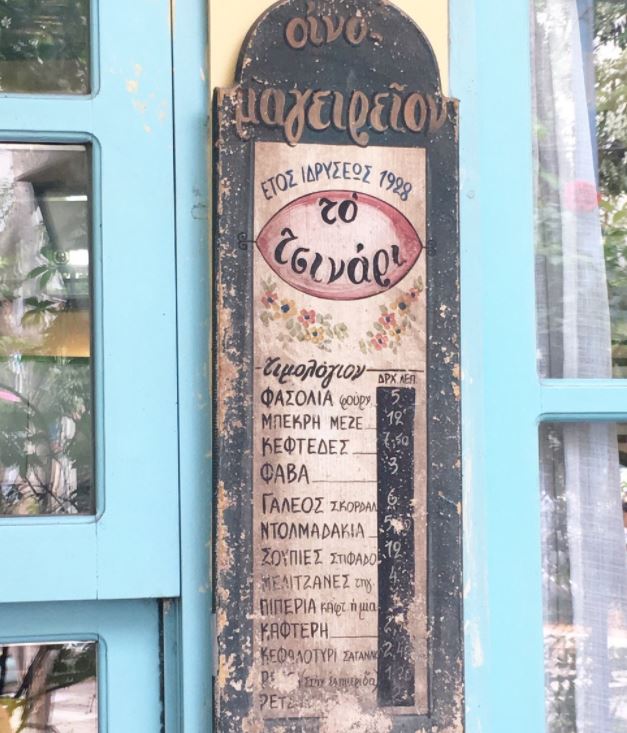 οἰνο-
μαγειρεῖον
ΕΤΟΣ ΙΔΡΥΣΕΩΣ 1928
τὸ
τσινάρι
τιμολόγιον ΔΡΧ ΛΕΠ.
ΦΑΣΟΛΙΑ φούρν. 5
ΜΠΕΚΡΗ ΜΕΖΕ 12
ΚΕΦΤΕΔΕΣ 7,50
ΦΑΒΑ 3
ΓΑΛΕΟΣ ΣΚΟΡΔΑΛ 6
ΝΤΟΛΜΑΔΑΚΙΑ
ΣΟΥΠΙΕΣ ΣΤΙΦΑΔΟ 12
ΜΕΛΙΤΖΑΝΕΣ της 4
ΠΙΠΕΡΙΑ καφτ ἡ μα
ΚΑΦΤΕΡΗ
ΚΕΦΑΛΟΤΥΡΙ ΣΑΓΑΝΑΚ